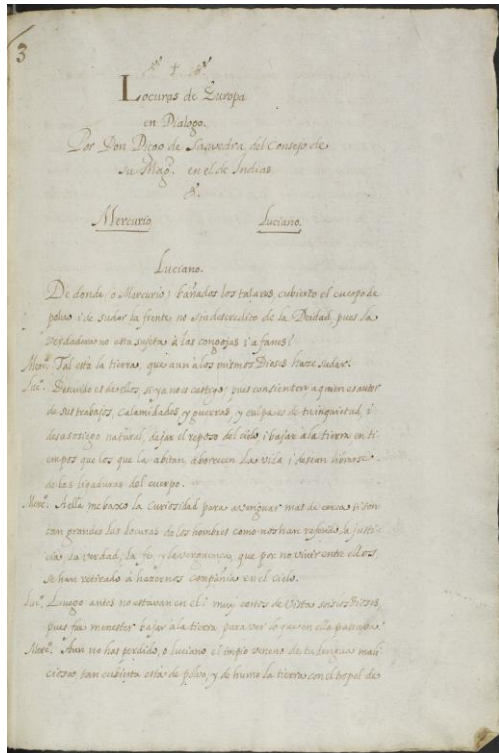 3
Locuras de Europa
en Dialogo.
Por Don Diego de Saavedra del Consejo de
su Magd. en el de Indias
Mercurio Luciano.
Luciano.
De donde, o Mercurio, bañados los talares, cubierto el cuerpo de
polvo i de sudor la frente, no sin descredito de la Deidad, pues la
verdadera no esta sujeta à las congojas i afanes?
Merc. Tal està la tierra, que aun à los mismos Dioses haze sudar.
Luc. es de ellos, si ya no es pues consienten, a quien es autor
de sus trabajos, calamidades, y guerras, y culpa es de tu inquietud, i
desasosiego natural, dejar el reposo del cielo, i bajar à la tierra en ti-
empos que los que la abitan aborrecen la vida i desean librarse
de las ligaduras del cuerpo.
Merc. A ella me baxò la curiosidad para averiguar mas de cerca si son
tan grandes las locuras de los hombres como nos han referido la justi-
cia, la verdad, la fe, y la verguenza, que por no vivir entre ellos
se han retirado à hazernos compañia en el cielo.
Luc. Luego antes no estavan en el i muy cortos de vista sois los Dioses,
pues fue menester bajar à la tierra, para ver lo que en ella pasava.
Merc. Aun no has perdido, o Luciano, el impio veneno de tu lengua mali-
ciosa, tan cubierta està de polvo, y de humo la tierra con el tropel de